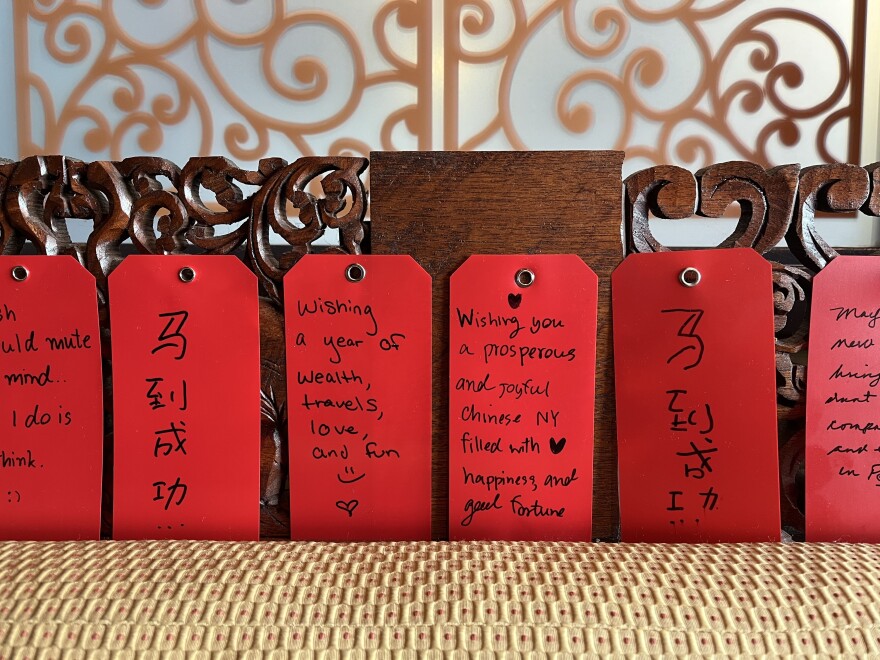 uld mute
mind..
I do is
think.
:)
马
到
成
功
...
Wishing
a year of
wealth,
travels,
love,
and fun
Wishing you
a prosperous
and joyful
Chinese NY
filled with ♥
happiness, and
good fortune
马
到
成
功
...
May
new
bring
and
in